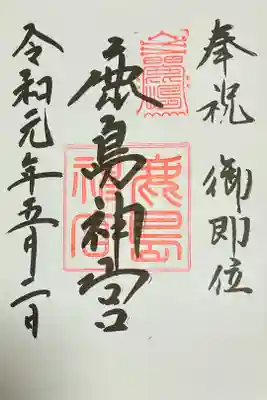 奉祝 御即位
鹿島神宮
鹿島
神宮
令和元年五月二日